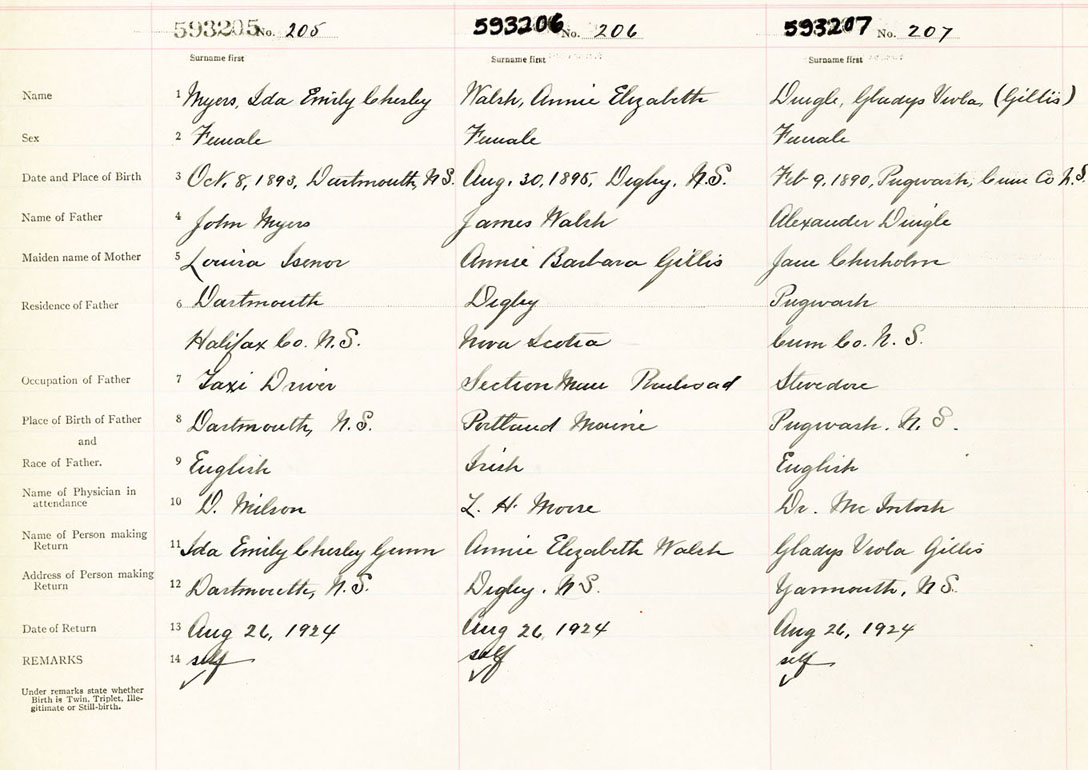 593205 No. 205 593206 No. 206 593207 No. 207
Surname first Surname first Surname first
Name 1 Myers, Ida Emily Chesley Walsh, Annie Elizabeth Dingle, Gladys Viola (Gillis)
Sex 2 Female Female Female
Date and Place of Birth 3 Oct. 8, 1893, Dartmouth, N.S. Aug. 30, 1895, Digby, N.S. Feb 9, 1890, Pugwash, Cum Co N.S
Name of Father 4 John Myers James Walsh Alexander Dingle
Maiden name of Mother 5 Louisa Isenor Annie Barbara Gillis Jane Chisholm
Residence of Father 6 Dartmouth Digby Pugwash
Halifax Co. N.S. Nova Scotia Cum Co. N.S.
Occupation of Father 7 Taxi Driver Section Man Railroad Stevedore
Place of Birth of Father 8 Dartmouth, N.S. Portland Maine Pugwash. N.S.
and
Race of Father. 9 English Irish English
Name of Physician in
attendance 10 D. Milson L. H. Morse Dr. Mc Intosh
Name of Person making
Return 11 Ida Emily Chesley Gunn Annie Elizabeth Walsh Gladys Viola Gillis
Address of Person making
Return 12 Dartmouth, N.S. Digby. N.S. Yarmouth, N.S.
Date of Return 13 Aug 26, 1924 Aug 26, 1924 Aug 26, 1924
REMARKS 14 self self self
Under remarks state whether
Birth is Twin, Triplet, Ille-
gitimate or Still-birth.